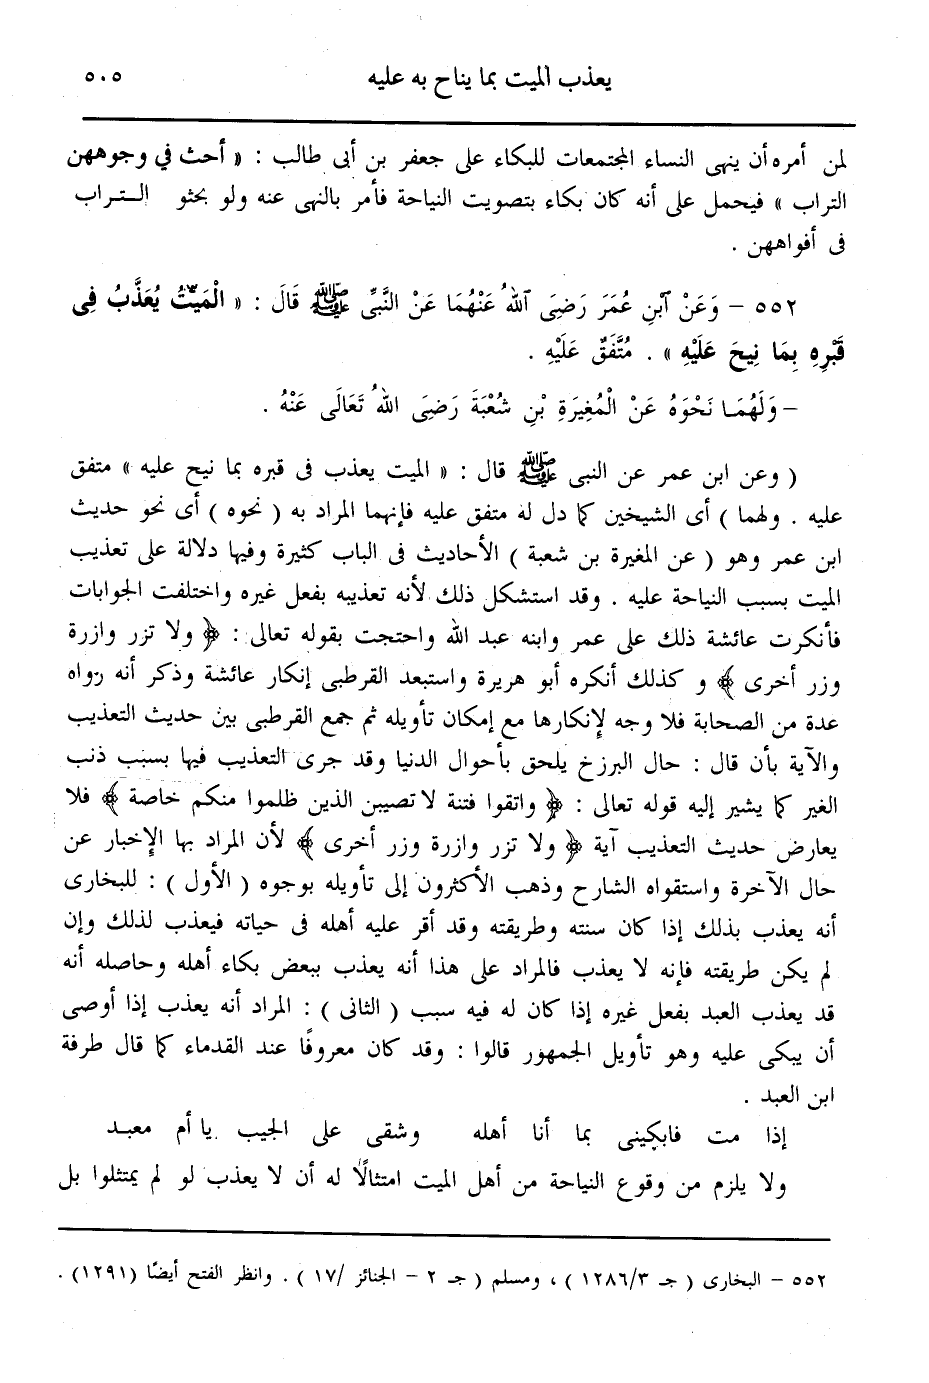 يعذب الميت بما يناح به عليه ٥٠٥
لمن أمره أن ينهى النساء المجتمعات للبكاء على جعفر بن أبى طالب : « أحث في وجوههن
التراب » فيحمل على أنه كان بكاء بتصويت النياحة فأمر بالنهى عنه ولو بحثو التراب
فى أفواههن .
٥٥٢ – وَعَنْ ٱبْنِ عُمَرَ رَضِىَ ٱللهُ عَنْهُمَا عَنْ النَّبِّى ﷺ قَالَ : « الْمَيِّتُ يُعَذَّبُ فِى
قَبْرِهِ بِمَا نِيحَ عَلَيْهِ » . مُتَّفَقٌ عَلَيْهِ .
– وَلَهُمَا نَحْوَهُ عَنْ الْمُغِيرَةِ بْنِ شُعْبَةَ رَضِىَ اللهُ تَعَالَى عَنْهُ .
( وعن ابن عمر عن النبى ﷺ قال : « الميت يعذب فى قبره بما نيح عليه » متفق
عليه . ولهما ) أى الشيخين كما دل له متفق عليه فإنهما المراد به ( نحوه ) أى نحو حديث
ابن عمر وهو ( عن المغيرة بن شعبة ) الأحاديث فى الباب كثيرة وفيها دلالة على تعذيب
الميت بسبب النياحة عليه . وقد استشكل ذلك لأنه تعذيبه بفعل غيره واختلفت الجوابات
فأنكرت عائشة ذلك على عمر وابنه عبد الله واحتجت بقوله تعالى : ﴿ ولا تزر وازرة
وزر أخرى ﴾ و كذلك أنكره أبو هريرة واستبعد القرطبى إنكار عائشة وذكر أنه رواه
عدة من الصحابة فلا وجه لإنكارها مع إمكان تأويله ثم جمع القرطبى بين حديث التعذيب
والآية بأن قال : حال البرزخ يلحق بأحوال الدنيا وقد جرى التعذيب فيها بسبب ذنب
الغير كما يشير إليه قوله تعالى : ﴿ واتقوا فتنة لا تصيبن الذين ظلموا منكم خاصة ﴾ فلا
يعارض حديث التعذيب آية ﴿ ولا تزر وازرة وزر أخرى ﴾ لأن المراد بها الإخبار عن
حال الآخرة واستقواه الشارح وذهب الأكثرون إلى تأويله بوجوه ( الأول ) : للبخارى
أنه يعذب بذلك إذا كان سنته وطريقته وقد أقر عليه أهله فى حياته فيعذب لذلك وإن
لم يكن طريقته فإنه لا يعذب فالمراد على هذا أنه يعذب ببعض بكاء أهله وحاصله أنه
قد يعذب العبد بفعل غيره إذا كان له فيه سبب ( الثانى ) : المراد أنه يعذب إذا أوصى
أن يبكى عليه وهو تأويل الجمهور قالوا : وقد كان معروفًا عند القدماء كما قال طرفة
ابن العبد .
إذا مت فابكينى بما أنا أهله وشقى على الجيب يا أم معبد
ولا يلزم من وقوع النياحة من أهل الميت امتثالًا له أن لا يعذب لو لم يمتثلوا بل
٥٥٢ – البخارى ( جـ ١٢٨٦/٣ ) ، ومسلم ( جـ ٢ – الجنائز /١٧ ) . وانظر الفتح أيضًا (١٢٩١) .